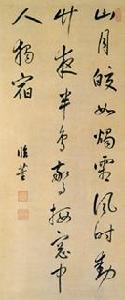 山月皎如燭霜風時動
竹夜半鳥驚棲窓中
人獨宿
臨董